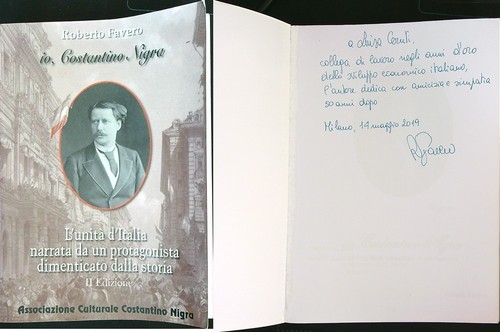 Roberto Favero
io, Costantino Nigra
L'unità d'Italia
narrata da un protagonista
dimenticato dalla storia
II Edizione
Associazione Culturale Costantino Nigra
a Luisa Ceruti,
collega di lavoro negli anni d'oro
dello sviluppo economico italiano,
l'autore dedica con amicizia e simpatia
50 anni dopo
Milano, 14 maggio 2019